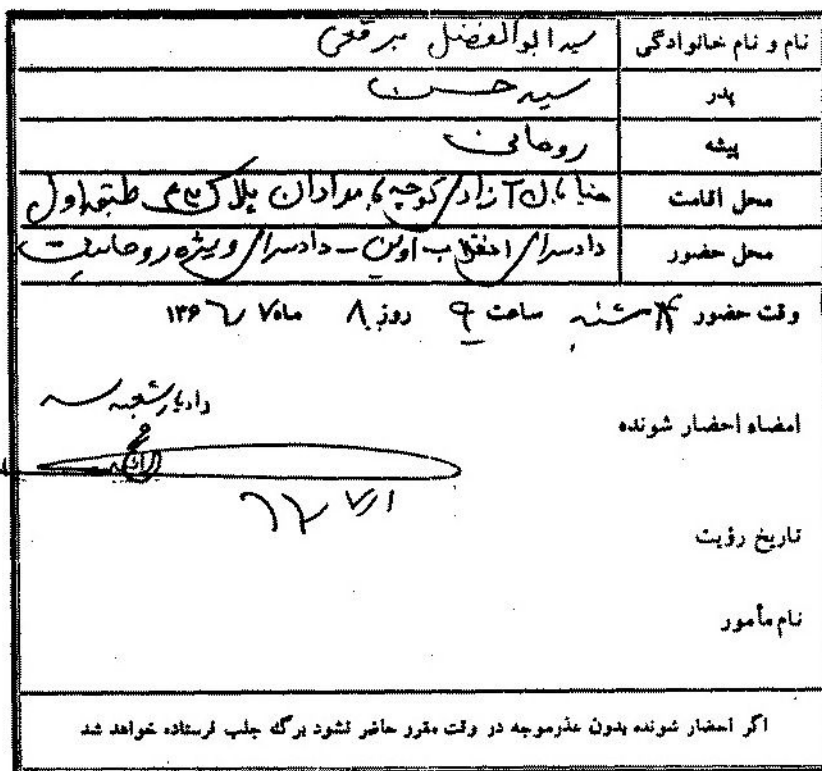 نام و نام خانوادگی سید ابوالفضل برقعی
پدر سید حسن
پیشه روحانی
محل اقامت خیابان آزادی کوچه بامدادان پلاک طبقه اول
محل حضور دادسرای انقلاب اوین - دادسرای ویژه روحانیت
وقت حضور ۴ شنبه ساعت ۹ روز ۸ ماه ۷ ۱۳۶۶
دادیار شعبه سه
امضاء احضار شونده
۶۶/۷/۱
تاریخ رؤیت
نام مأمور
اگر احضار شونده بدون عذرموجه در وقت مقرر حاضر نشود برگ جلب فرستاده خواهد شد